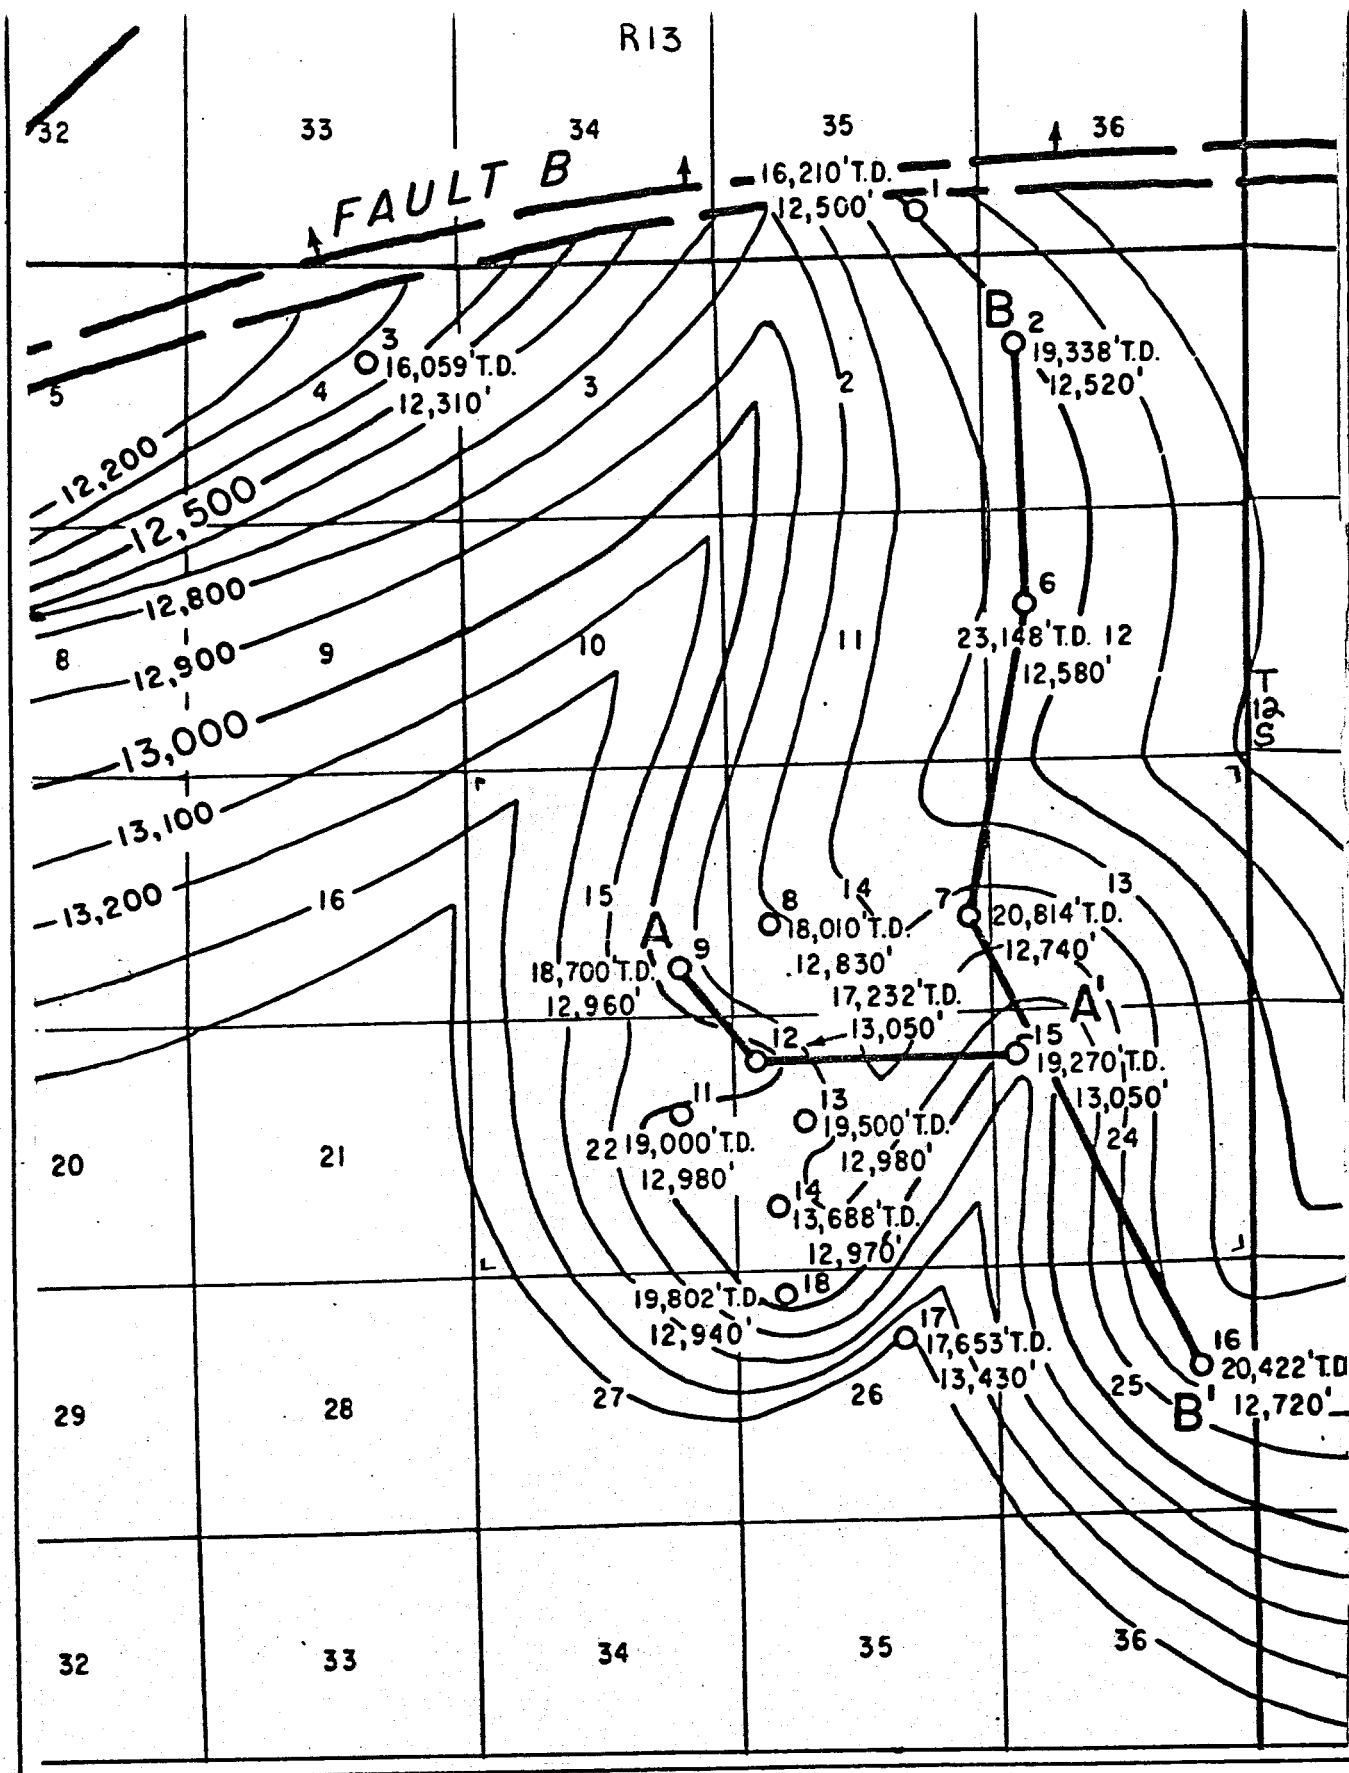 R13
32
33
34
35
36
FAULT B
16,210' T.D.
12,500'
1
B
2
19,338' T.D.
12,520'
3
16,059' T.D.
12,310'
5
4
3
2
12,200
12,500
12,800
12,900
13,000
13,100
13,200
6
23,148' T.D.
12
12,580'
8
9
10
11
T
12
S
16
15
14
13
A
9
18,700' T.D.
12,960'
8
18,010' T.D.
12,830'
7
20,814' T.D.
12,740'
17,232' T.D.
13,050'
12
A'
15
19,270' T.D.
13,050'
11
19,000' T.D.
12,980'
13
19,500' T.D.
12,980'
20
21
22
24
14
13,688' T.D.
12,970'
18
19,802' T.D.
12,940'
17
17,653' T.D.
13,430'
16
20,422' T.D.
12,720'
B'
29
28
27
26
25
32
33
34
35
36